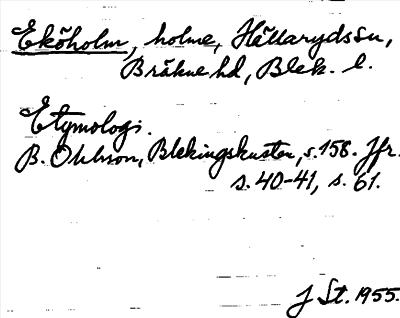 Eköholm, holme, Hällarydssn,
Bräkne hd, Blek. l.
Etymologi.
B. Ohlsson, Blekingskusten, s. 158. Jfr.
s. 40-41, s. 61.
J St. 1955.